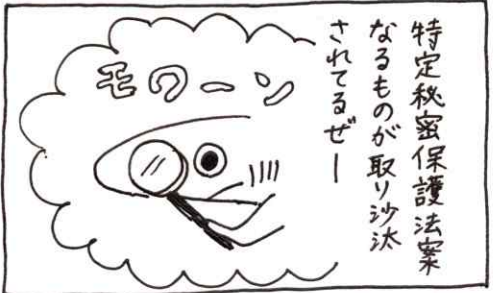 特定秘密保護法案
なるものが取り沙汰
されてるぜー
モワーン